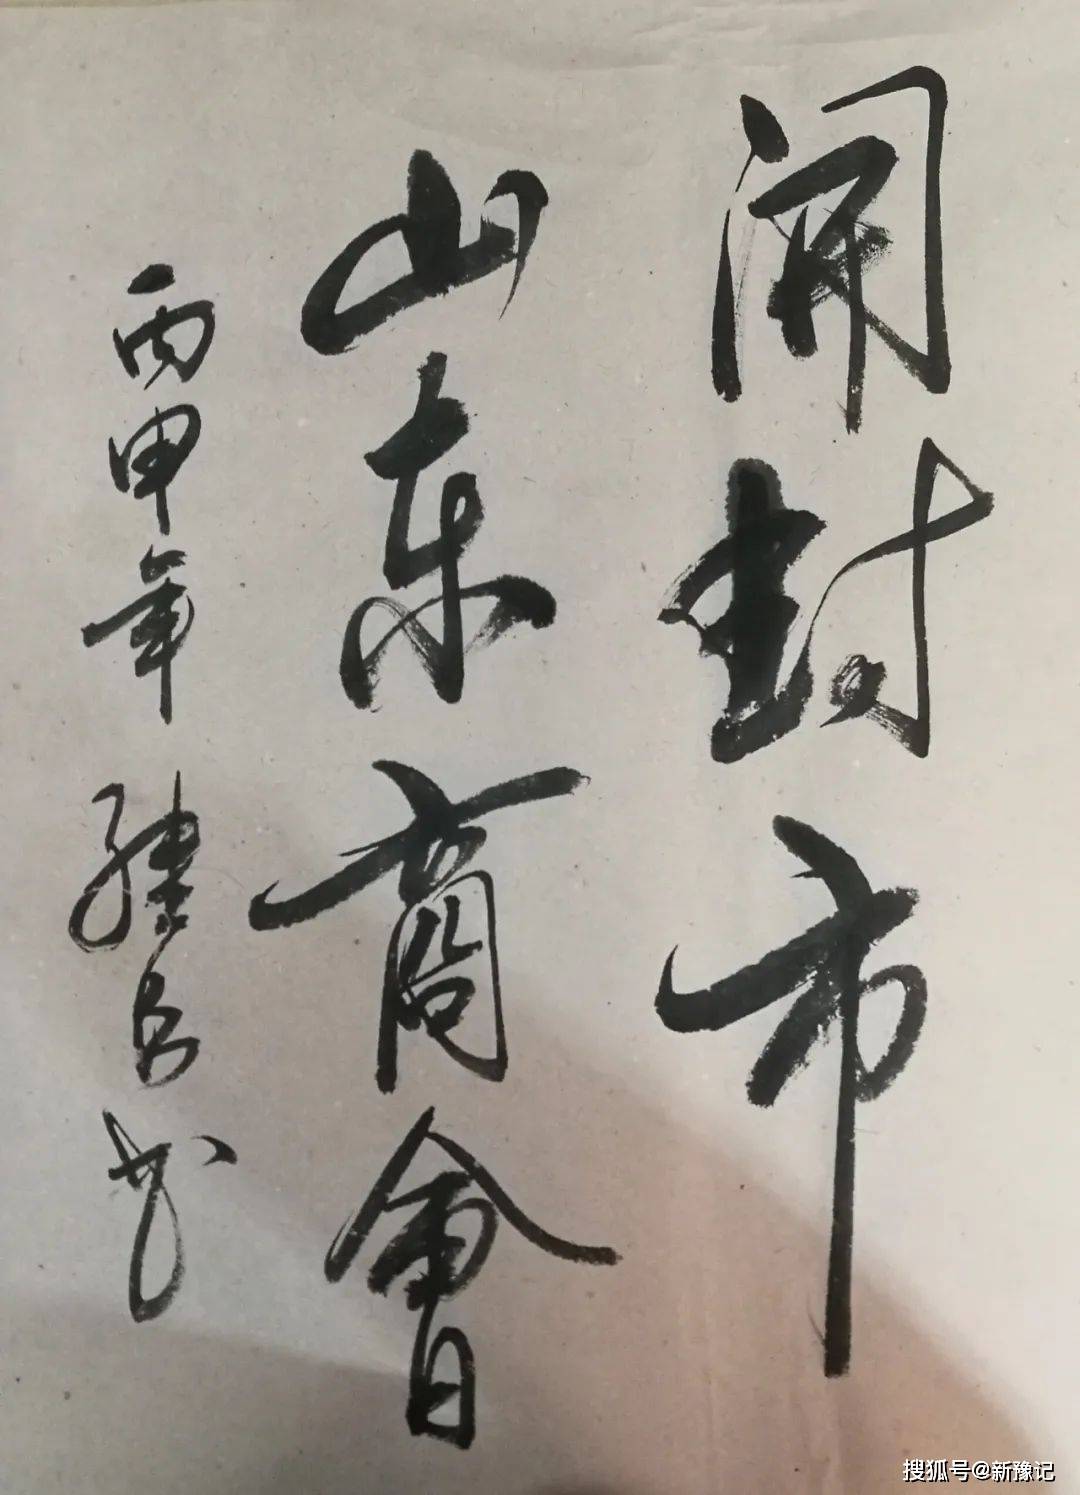 開封市
山东商會
丙申年 建安书
搜狐号@新豫记